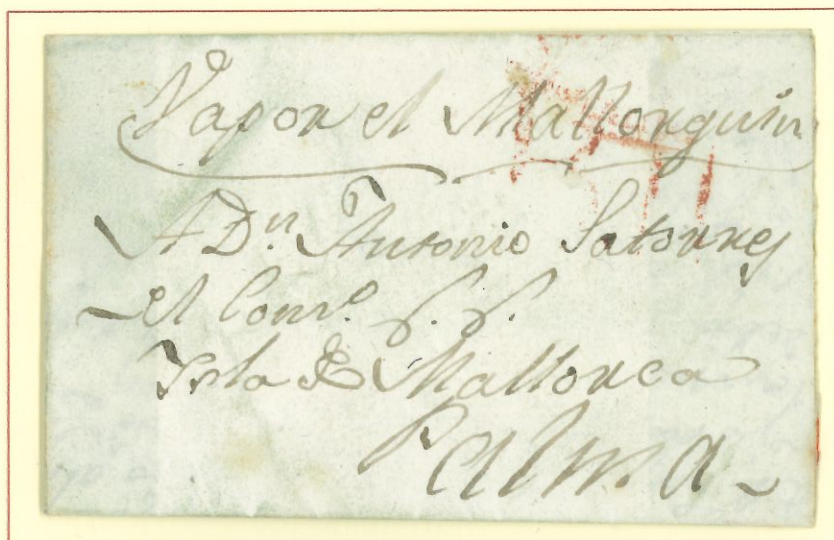 Vapor el Mallorquin
A Dn. Antonio Satorres
el Como. G. G.
Isla de Mallorca
Palma